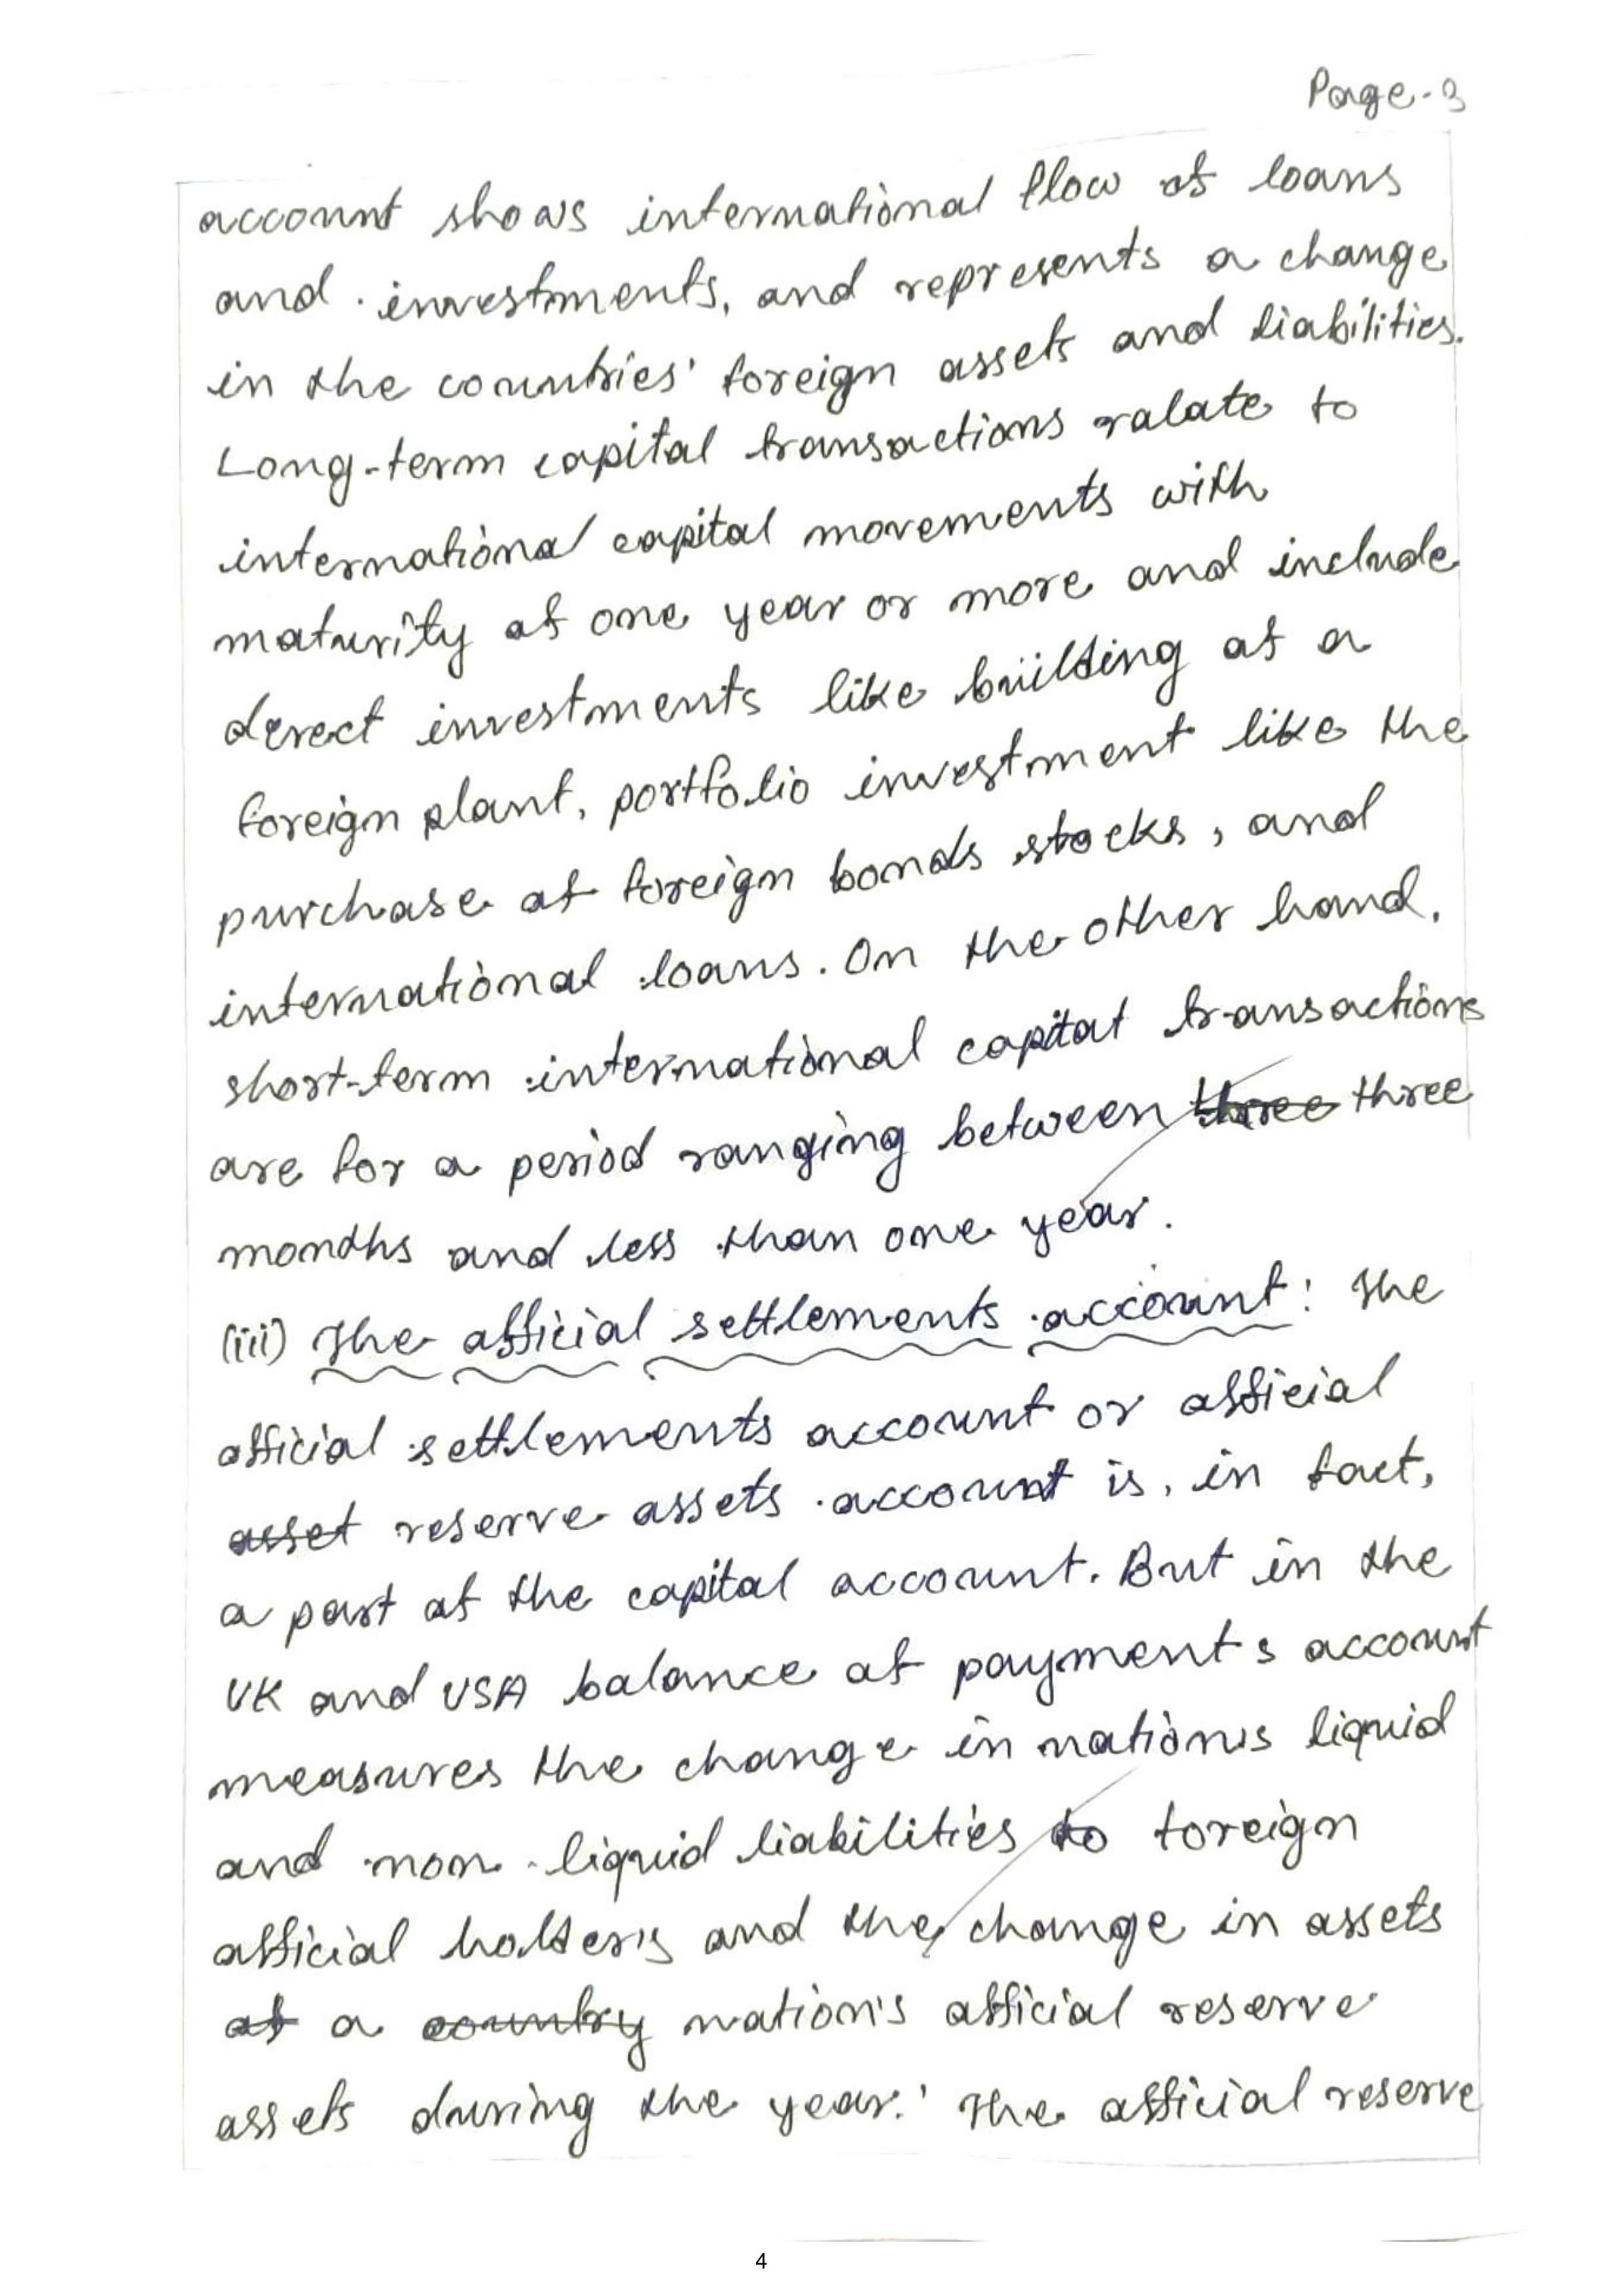 Page-3
account shows international flow of loans
and investments, and represents a change
in the countries' foreign assets and liabilities.
Long-term capital transactions ralate to
international capital movements with
maturity of one year or more and include
derect investments like building of a
foreign plant, portfolio investment like the
purchase of foreign bonds stocks, and
international loans. On the other hand,
short-term international capital transactions
are for a period ranging between three three
months and less than one year.
(iii) The official settlements account: The
official settlements account or official
asset reserve assets account is, in fact,
a part of the capital account. But in the
UK and USA balance of payments account
measures the change in nation's liquid
and non-liquid liabilities to foreign
official holder's and the change in assets
of a country nation's official reserve
assets during the year.' The official reserve
4